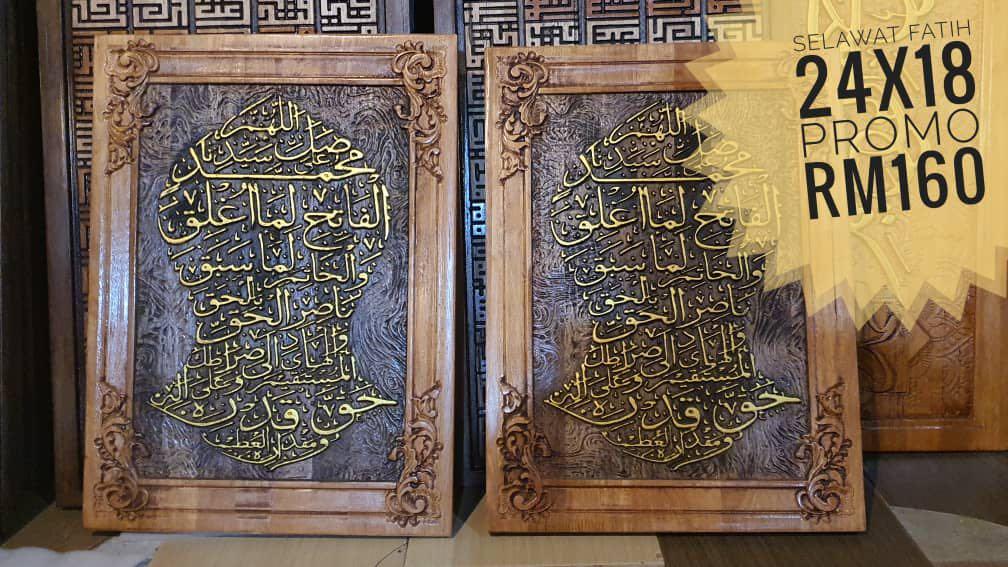 اللهم
صل على سيدنا
محمد
الفاتح لما اغلق
والخاتم لما سبق
ناصر الحق بالحق
والهادي الى صراطك
المستقيم وعلى آله
حق قدره
ومقداره العظيم
اللهم
صل على سيدنا
محمد
الفاتح لما اغلق
والخاتم لما سبق
ناصر الحق بالحق
والهادي الى صراطك
المستقيم وعلى آله
حق قدره
ومقداره العظيم
SELAWAT FATIH
24X18
PROMO
RM160